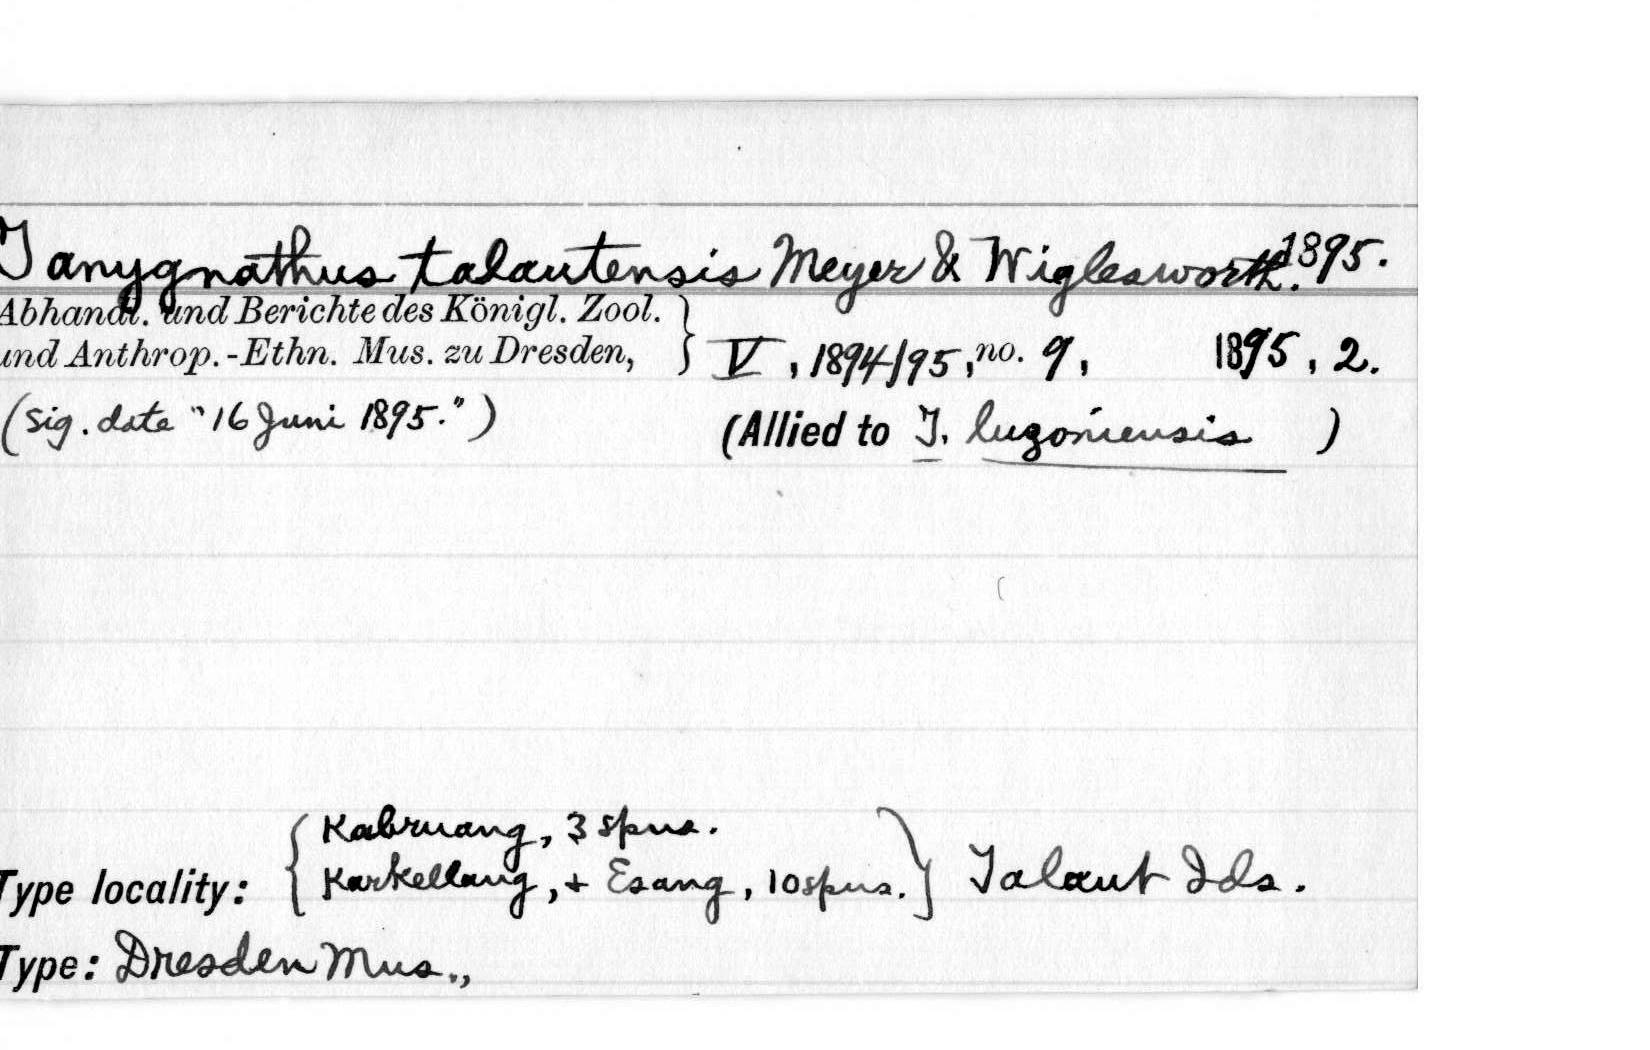 Tanygnathus talautensis Meyer & Wiglesworth. 1895.
Abhandl. und Berichte des Königl. Zool.
und Anthrop.-Ethn. Mus. zu Dresden, } V, 1894/95, no. 9, 1895, 2.
(Sig. date "16 Juni 1895.") (Allied to T. luzoniensis )
Kabruang, 3 spns.
Type locality: { Karkellang, + Esang, 10 spns. } Talaut Ids.
Type: Dresden Mus.,